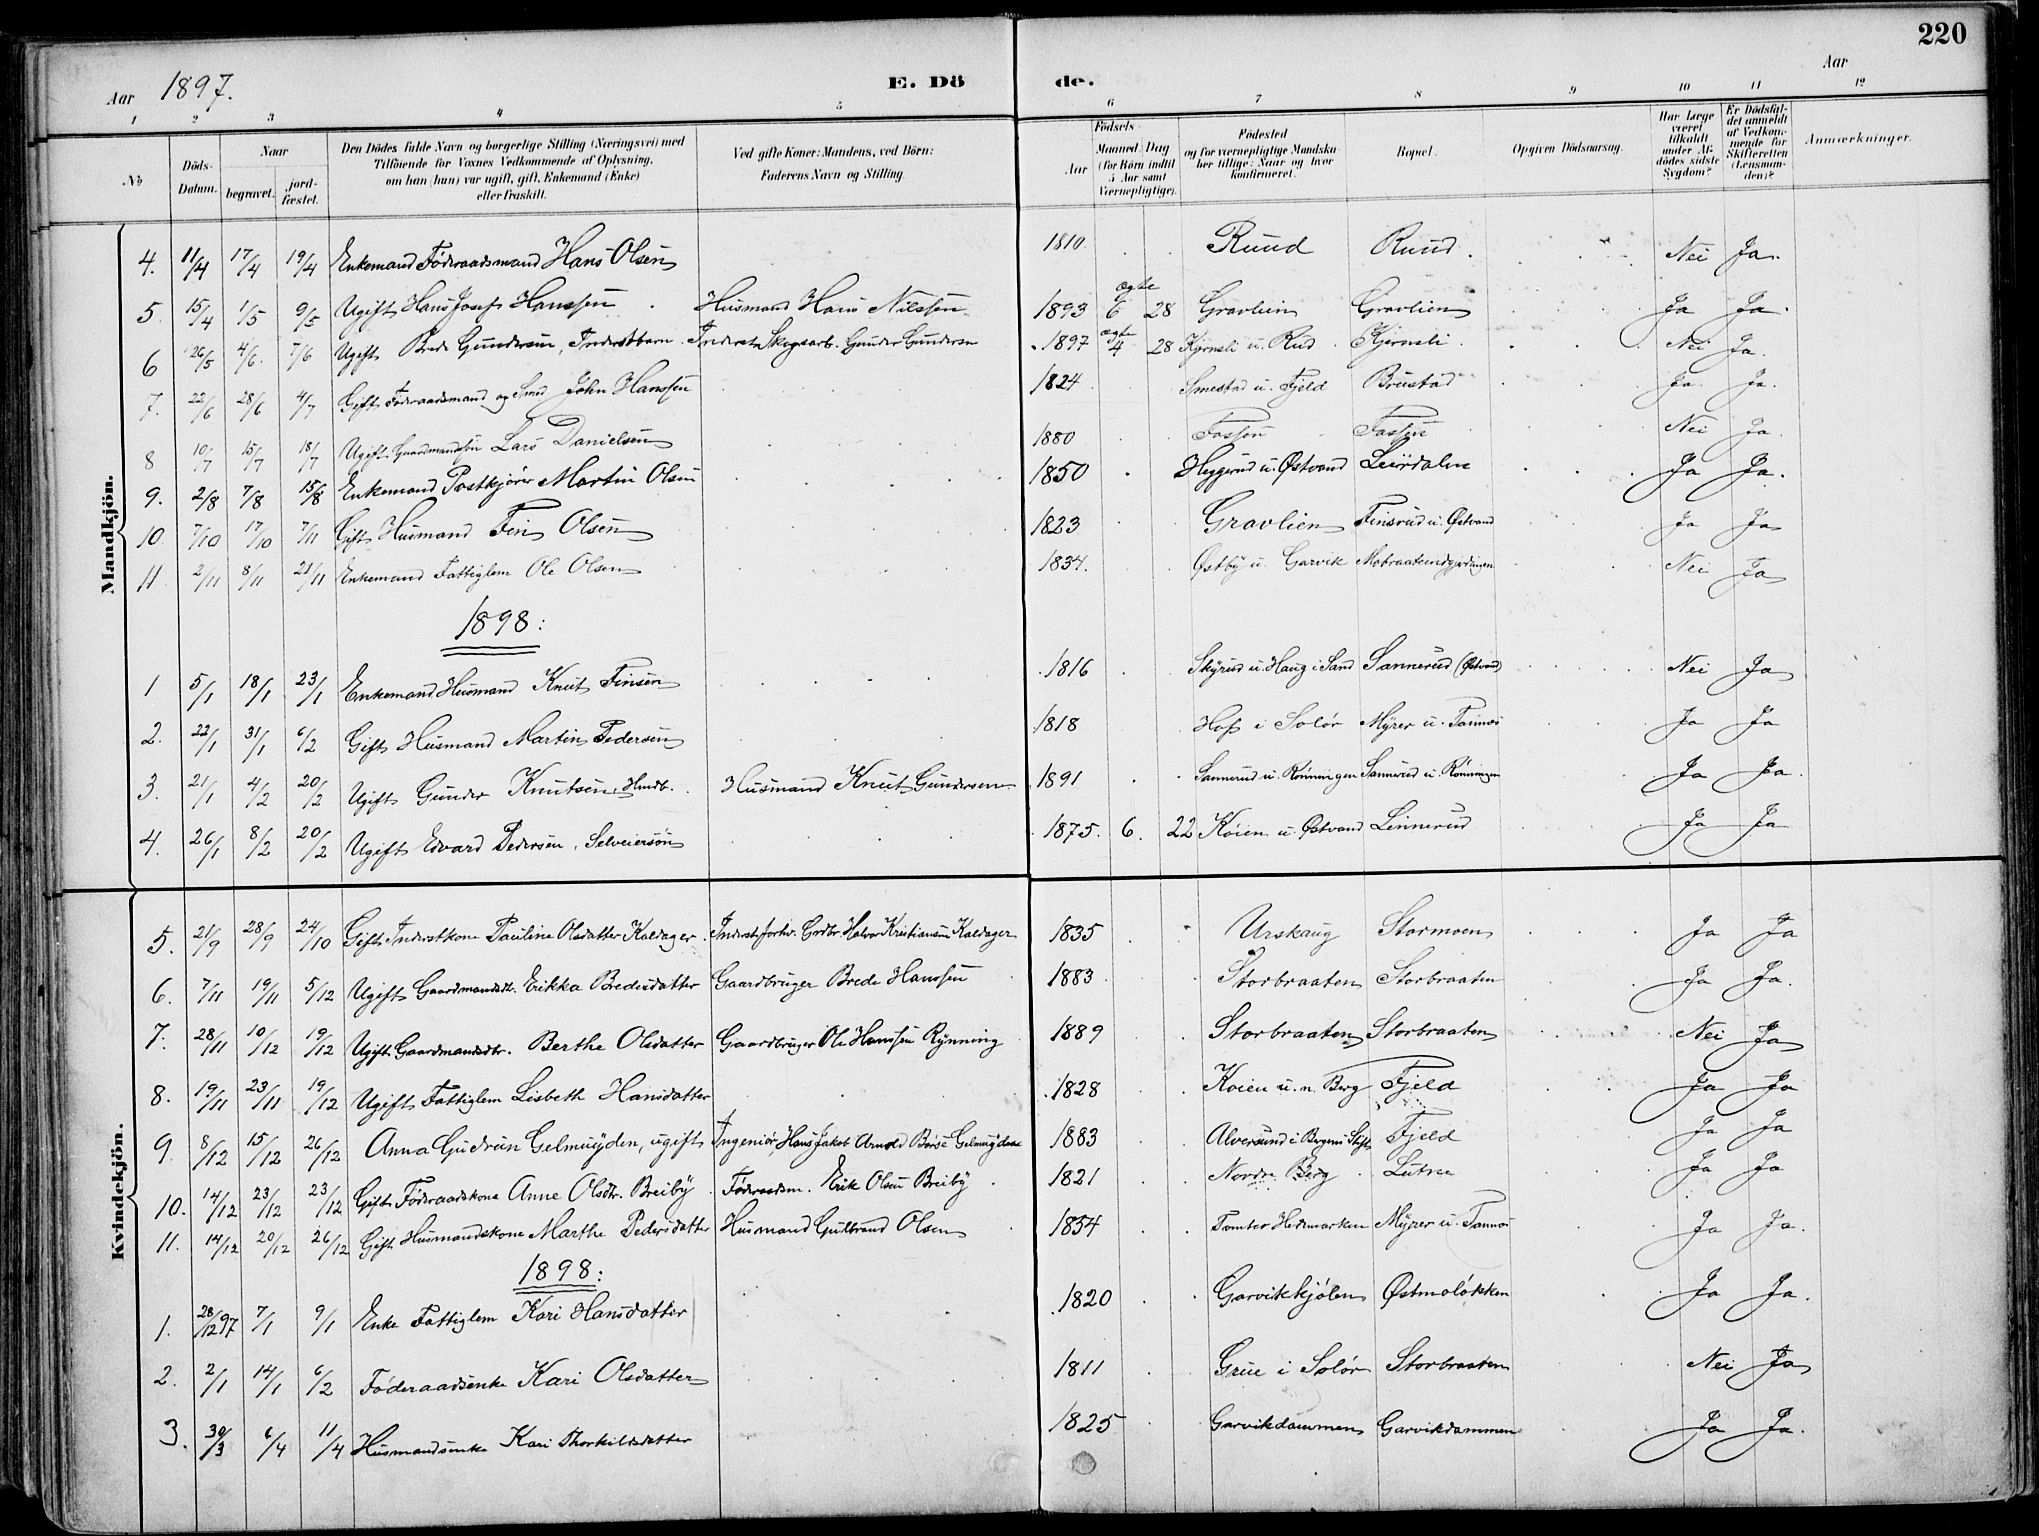 220
Aar 1897. E. Dö de. Aar
1 2 3 4 5 6 7 8 9 10 11 12
№ Döds-Datum. Naar begravet. jord-fæstet. Den Dödes fulde Navn og borgerlige Stilling (Næringsvei) med Tilföiende for Voxnes Vedkommende af Oplysning, om han (hun) var ugift, gift, Enkemand (Enke) eller fraskilt. Ved gifte Koner: Mandens, ved Börn: Faderens Navn og Stilling. Födsels- Aar Maaned. Dag (for Börn indtil 5 Aar samt Værnepligtige). Födested og for værnepligtige Mandskaber tillige: Naar og hvor konfirmeret. Bopæl. Opgiven Dödsaarsag. Har Læge været tilkaldt under Afdödes sidste Sygdom? Er Dödsfaldet anmeldt af Vedkommende for Skifteretten (Lensmanden)? Anmærkninger.
Mandkjön.
4. 11/4 17/4 19/4 Enkemand Föderaadsmand Hans Olsen 1810 Ruud Ruud Nei Ja.
5. 15/4 1/5 9/5 Ugift Hans Josef Hanssen Husmand Hans Nilssen 1893 ægte 6 28 Gravlien Gravlien Ja Ja.
6 26/5 4/6 7/6 Ugift Brede Gundersen, Inderstbarn Inderst Skogsarb. Gunder Gundersen 1897 ægte 4 28 Kjernsli u. Rud Kjernsli Nei Ja.
7. 22/6 28/6 4/7 Gift Föderaadsmand og Smed John Hanssen 1824 Smestad u. Fjeld Brustad Ja Ja.
8 10/7 15/7 18/7 Ugift Gaardmandssön Lars Danielsen 1880 Fossen Fossen Nei Ja
9. 2/8 7/8 15/8 Enkemand Postkjörer Martin Olsen 1850 Heggerud u. Østvand Leirdalen Ja Ja.
10. 7/10 17/10 7/11 Gift Husmand Fin Olsen 1823 Gravlien Finsrud u. Østvand Ja Ja
11. 2/11 8/11 21/11 Enkemand Fattiglem Ole Olsen 1834. Østby u. Garvik Mobraatenengjerdingen Nei Ja
1898:
1 5/1 18/1 23/1 Enkemand Husmand Knut Finsen 1816 Skyrud u. Haug i Sand Sannerud (Østvand) Nei Ja
2. 22/1 31/1 6/2 Gift Husmand Martin Pedersen 1818 Hof i Solör Myrer u. Tannæs Ja Ja
3. 21/1 4/2 20/2 Ugift Gunder Knutsen, Husdb. Husmand Knut Gundersen 1891 Sannerud u. Rönningen Sannerud u. Rönningen Ja Ja.
4. 26/1 8/2 20/2 Ugift Edvard Pedersen, Selveiersön 1875. 6. 22 Köien u. Østvand Linnerud Ja Ja
Kvindekjön.
5. 21/9 28/9 24/10 Gift Inderstkone Pauline Olsdatter Kaldager Inderst forhv. Grdbr. Halvor Kristiansen Kaldager 1835 Urskaug Stormoen Ja Ja
6. 7/11 19/11 5/12 Ugift Gaardmandsdt. Erikka Bredesdatter Gaardbruger Brede Hanssen 1883 Storbraaten Storbraaten Ja Ja.
7. 28/11 10/12 19/12 Ugift Gaardmandsdtr. Berthe Olsdatter Gaardbruger Ole Hanssen Rynning 1889 Storbraaten Storbraaten Nei Ja
8. 19/11 23/11 19/12 Ugift Fattiglem Lisbeth Hansdatter 1828 Koien u. n. Berg Fjeld Ja Ja
9. 8/12 15/12 26/12 Anna Gudrun Gelmuyden, ugift Ingeniör, Hans Jakob Arnold Börse Gelmuyden 1883 Alversund i Bergens Stift Fjeld Ja Ja
10. 14/12 23/12 23/12 Gift Föderaadskone Anne Olsdtr. Breiby Föderaadsm. Erik Olsen Breiby 1821 Nordre Berg Lutne Ja Ja
11. 14/12 20/12 26/12 Gift Husmandskone Marthe Pedersdatter Husmand Gulbrand Olsen 1834 Tomter Hedemarken Myrer u. Tannæs Ja Ja.
1898:
1. 28/12 97 7/1 9/1 Enke Fattiglem Kari Hansdatter 1820 Garvikkjölen Østmolökken Ja Ja.
2. 2/1 14/1 6/2 Föderaadsenke Kari Olsdatter 1811 Grue i Solör Storbraaten Nei Ja
3. 30/3 6/4 11/4 Husmandsenke Kari Thorkilsdatter 1825 Garvikdammen Garvikdammen Ja Ja.